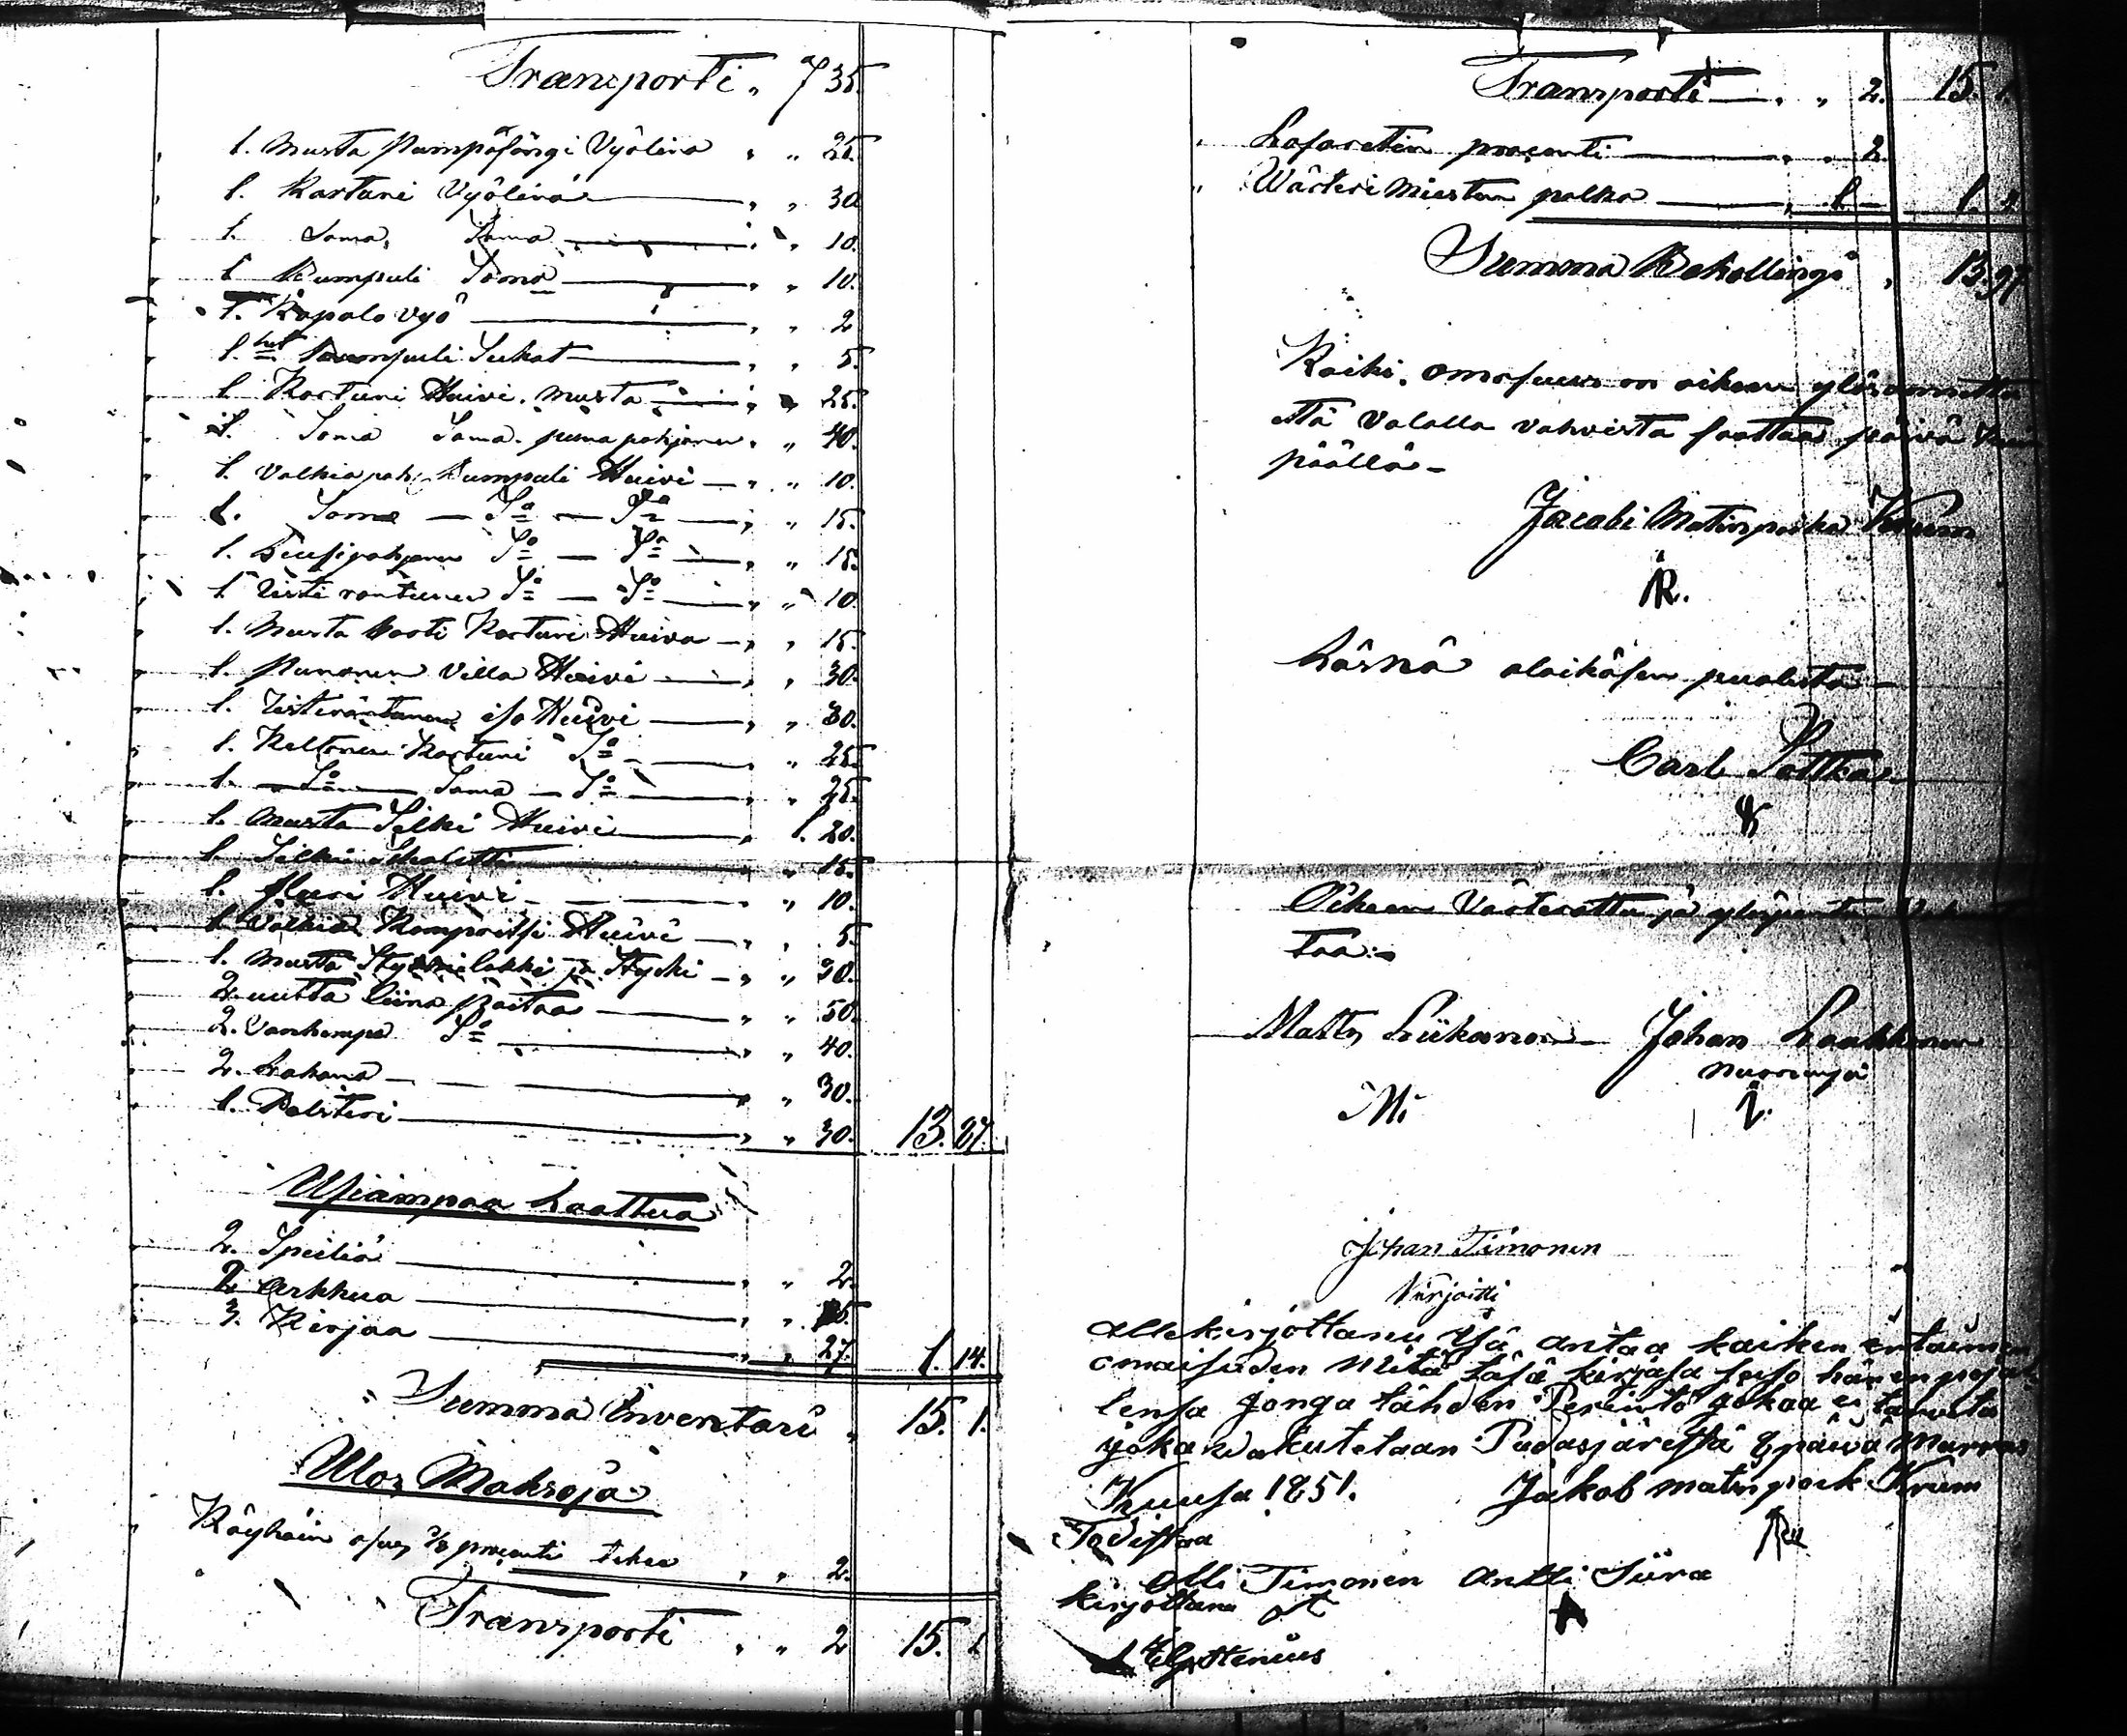 Transporti „ 7 35.
1. Musta Pumpäsöngi Vyöliva „ „ 25.
1. Kartuni Vyöliva „ „ 30
1. Sama, Sama „ „ 10.
1 Bumpuli Sama „ „ 10.
1. Kapalo vyö „ „ 2
1. Bumpuli Sukat „ „ 5.
1 Kartuni Huivi. Musta „ „ 25.
1. Sama Sama. puna pohjanen „ „ 40.
1. Valkia poh: Bumpuli Huivi „ „ 10.
1. Sama — Sa — Sa „ „ 15.
1. pohjanen Sa — Sa „ „ 15.
1 Risti räntunen Sa — Sa „ „ 10.
1. Musta Kartuni Huivi „ „ 15.
1. Punanen Villa Huivi „ „ 30.
1. Ristiräntunen iso Huivi „ „ 30.
1. Keltanen Kartuni Sa „ „ 25.
1. Sa Sama — Sa „ „ 25.
1. Musta Silki Huivi „ 1. 20.
1. Silki „ „ 15.
1. flaari Huivi „ „ 10.
1. Valkia Huivi „ „ 5.
1. Musta Stykkilakki ja Stycki „ „ 20.
2 uutta liina paitaa „ „ 50.
2. Vanhempa Sa „ „ 40.
2. Lakana „ „ 30.
1. Polsteri „ „ 30. 13. 27.
Usiampaa Laattua
2. Speiliä „ „ 2.
2 Arkkua „ „
3. Kirjaa „ „ 27. 1. 14.
„ Summa Inventari „ 15. 1.
Ulos Maksoja
Köyhäin osus 1/8 procenti tekee „ „ 2.
Transporti „ „ 2 15. 1
Transporti „ „ 2. 15. 1.
„ Lasaretin procenti „ „ 2.
„ Värteri Miesten palka „ 1. — 1.
Summa Behollingi „ 13. 97
Kaiki. omasuus on oikeen ylösannettu
että valalla vahvista saattaa päivä
päällä —
Jacobi Matinpoika Krum
K.
Läsnä alaikäsen puolesta —
Carl Sottka
Oikeen Värterattu ja ylöspantu
taa:
Matts Liikanen Johan Laakkonen
nuorempi
M. L.
Johan Timonen
Kirjoitti
Allekirjottanu Isä antaa kaiken
omaisuden mitä täsä kirjasa seiso hänen
lensa jonga tähden Perintö jakaa ei tarvita
joka vakutetaan Pudasjärvessä 8 päivä Marras
Kuusa 1851. Jakob matin poik Krum
Todistaa
Olli Timonen Antti Siira
kirjottanu